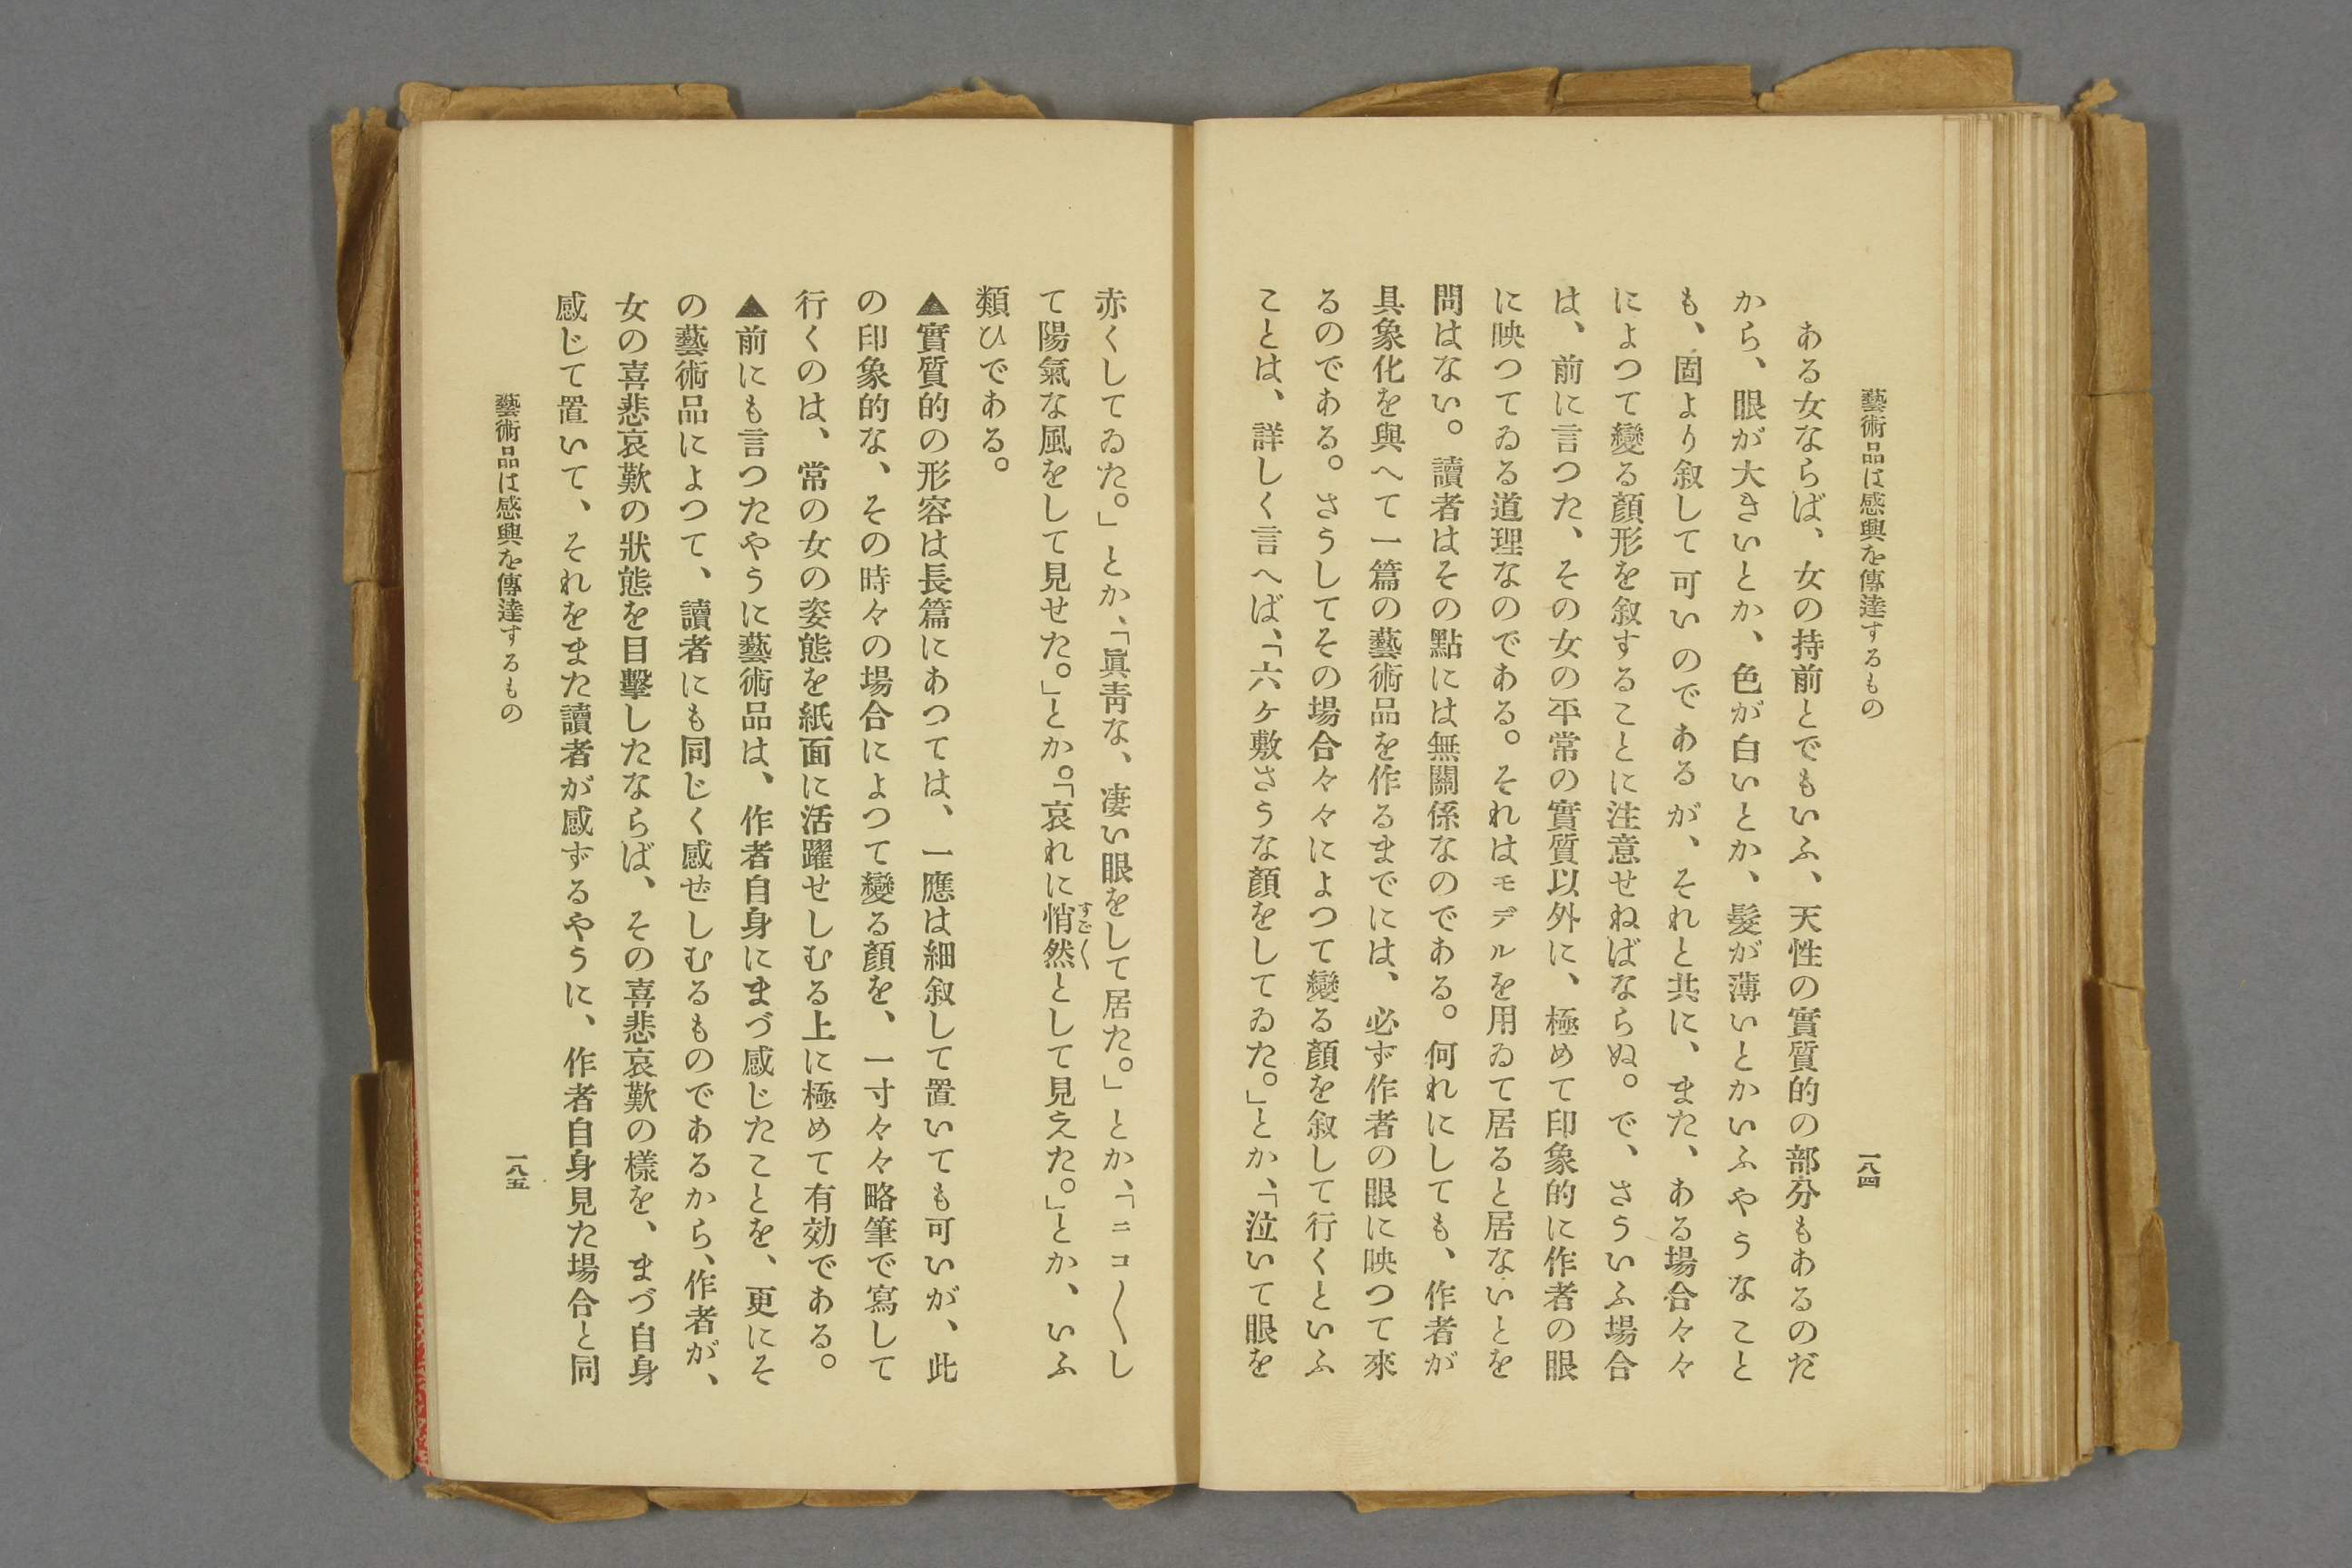 藝術品は感興を傳達するもの
一八四
ある女ならば、女の持前とでもいふ、天性の實質的の部分もあるのだ
から、眼が大きいとか、色が白いとか、髮が薄いとかいふやうなこと
も、固より叙して可いのであるが、それと共に、また、ある場合々々
によつて變る顏形を叙することに注意せねばならぬ。で、さういふ場合
は、前に言つた、その女の平常の實質以外に、極めて印象的に作者の眼
に映つてゐる道理なのである。それはモデルを用ゐて居ると居ないとを
問はない。讀者はその點には無關係なのである。何れにしても、作者が
具象化を與へて一篇の藝術品を作るまでには、必ず作者の眼に映つて來
るのである。さうしてその場合々々によつて變る顏を叙して行くといふ
ことは、詳しく言へば、「六ヶ敷さうな顏をしてゐた。」とか、「泣いて眼を
赤くしてゐた。」とか、「眞靑な、凄い眼をして居た。」とか、「ニコ〱し
て陽氣な風をして見せた。」とか。「哀れに悄然として見えた。」とか、いふ
すご〱
類ひである。
▲實質的の形容は長篇にあつては、一應は細叙して置いても可いが、此
の印象的な、その時々の場合によつて變る顏を、一寸々々略筆で寫して
行くのは、常の女の姿態を紙面に活躍せしむる上に極めて有効である。
▲前にも言つたやうに藝術品は、作者自身にまづ感じたことを、更にそ
の藝術品によつて、讀者にも同じく感ぜしむるものであるから、作者が、
女の喜悲哀歎の狀態を目擊したならば、その喜悲哀歎の樣を、まづ自身
感じて置いて、それをまた讀者が感ずるやうに、作者自身見た場合と同
藝術品は感興を傳達するもの
一八五